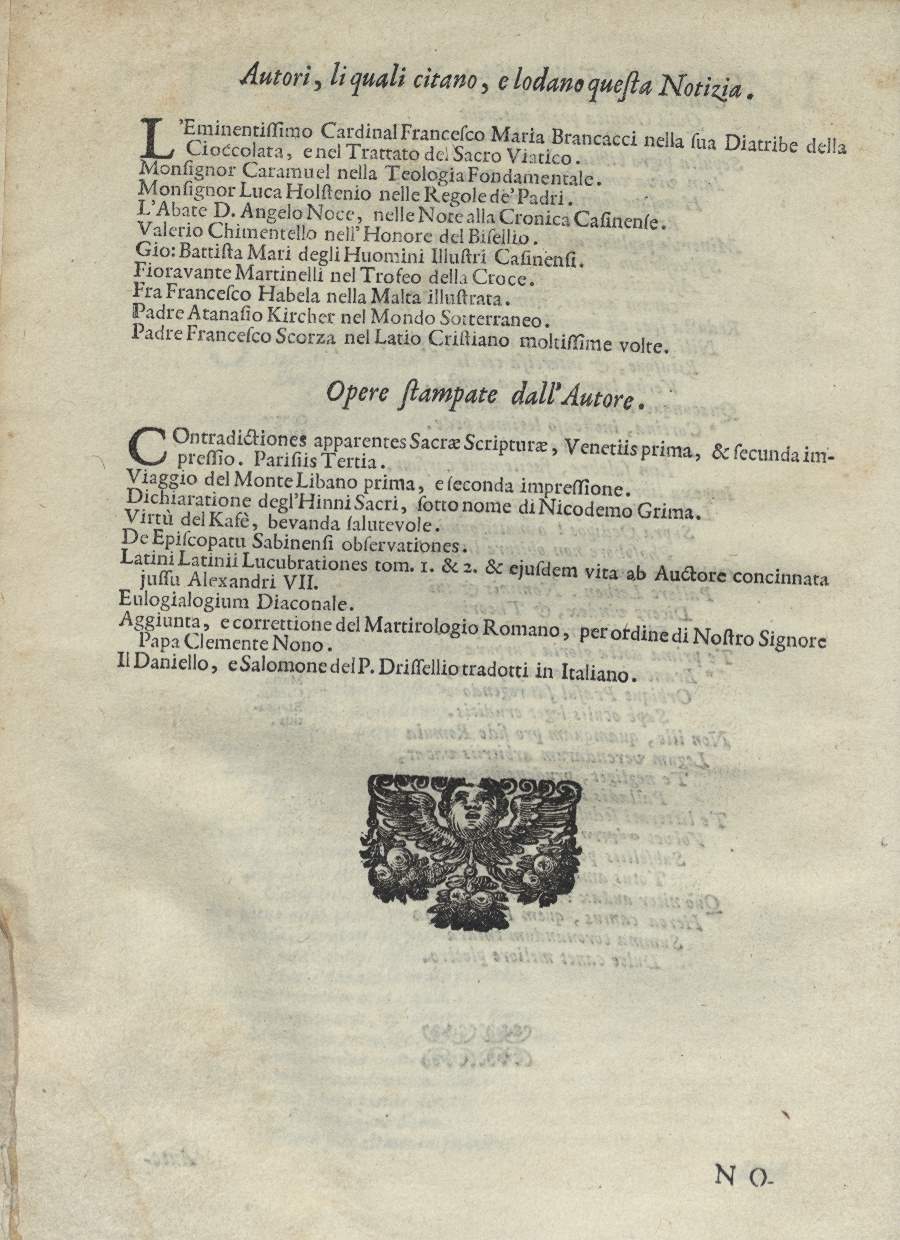 Autori, li quali citano, e lodano queſta Notizia.
L'Eminentiſſimo Cardinal Franceſco Maria Brancacci nella ſua Diatribe della
Cioccolata, e nel Trattato del Sacro Viatico.
Monſignor Caramuel nella Teologia Fondamentale.
Monſignor Luca Holſtenio nelle Regole de' Padri.
L'Abate D. Angelo Noce, nelle Note alla Cronica Caſinenſe.
Valerio Chimentello nell' Honore del Biſellio.
Gio: Battiſta Mari degli Huomini Illuſtri Caſinenſi.
Fioravante Martinelli nel Trofeo della Croce.
Fra Franceſco Habela nella Malta illuſtrata.
Padre Atanaſio Kircher nel Mondo Sotterraneo.
Padre Franceſco Scorza nel Latio Criſtiano moltiſſime volte.
Opere ſtampate dall'Autore.
COntradictiones apparentes Sacræ Scripturæ, Venetiis prima, & ſecunda im-
preſſio. Pariſiis Tertia.
Viaggio del Monte Libano prima, e ſeconda impreſſione.
Dichiaratione degl'Hinni Sacri, ſotto nome di Nicodemo Grima.
Virtù del Kafè, bevanda ſalutevole.
De Epiſcopatu Sabinenſi obſervationes.
Latini Latinii Lucubrationes tom. 1. & 2. & ejuſdem vita ab Auctore concinnata
juſſu Alexandri VII.
Eulogialogium Diaconale.
Aggiunta, e correttione del Martirologio Romano, per ordine di Noſtro Signore
Papa Clemente Nono.
Il Daniello, e Salomone del P. Driſſellio tradotti in Italiano.
NO-